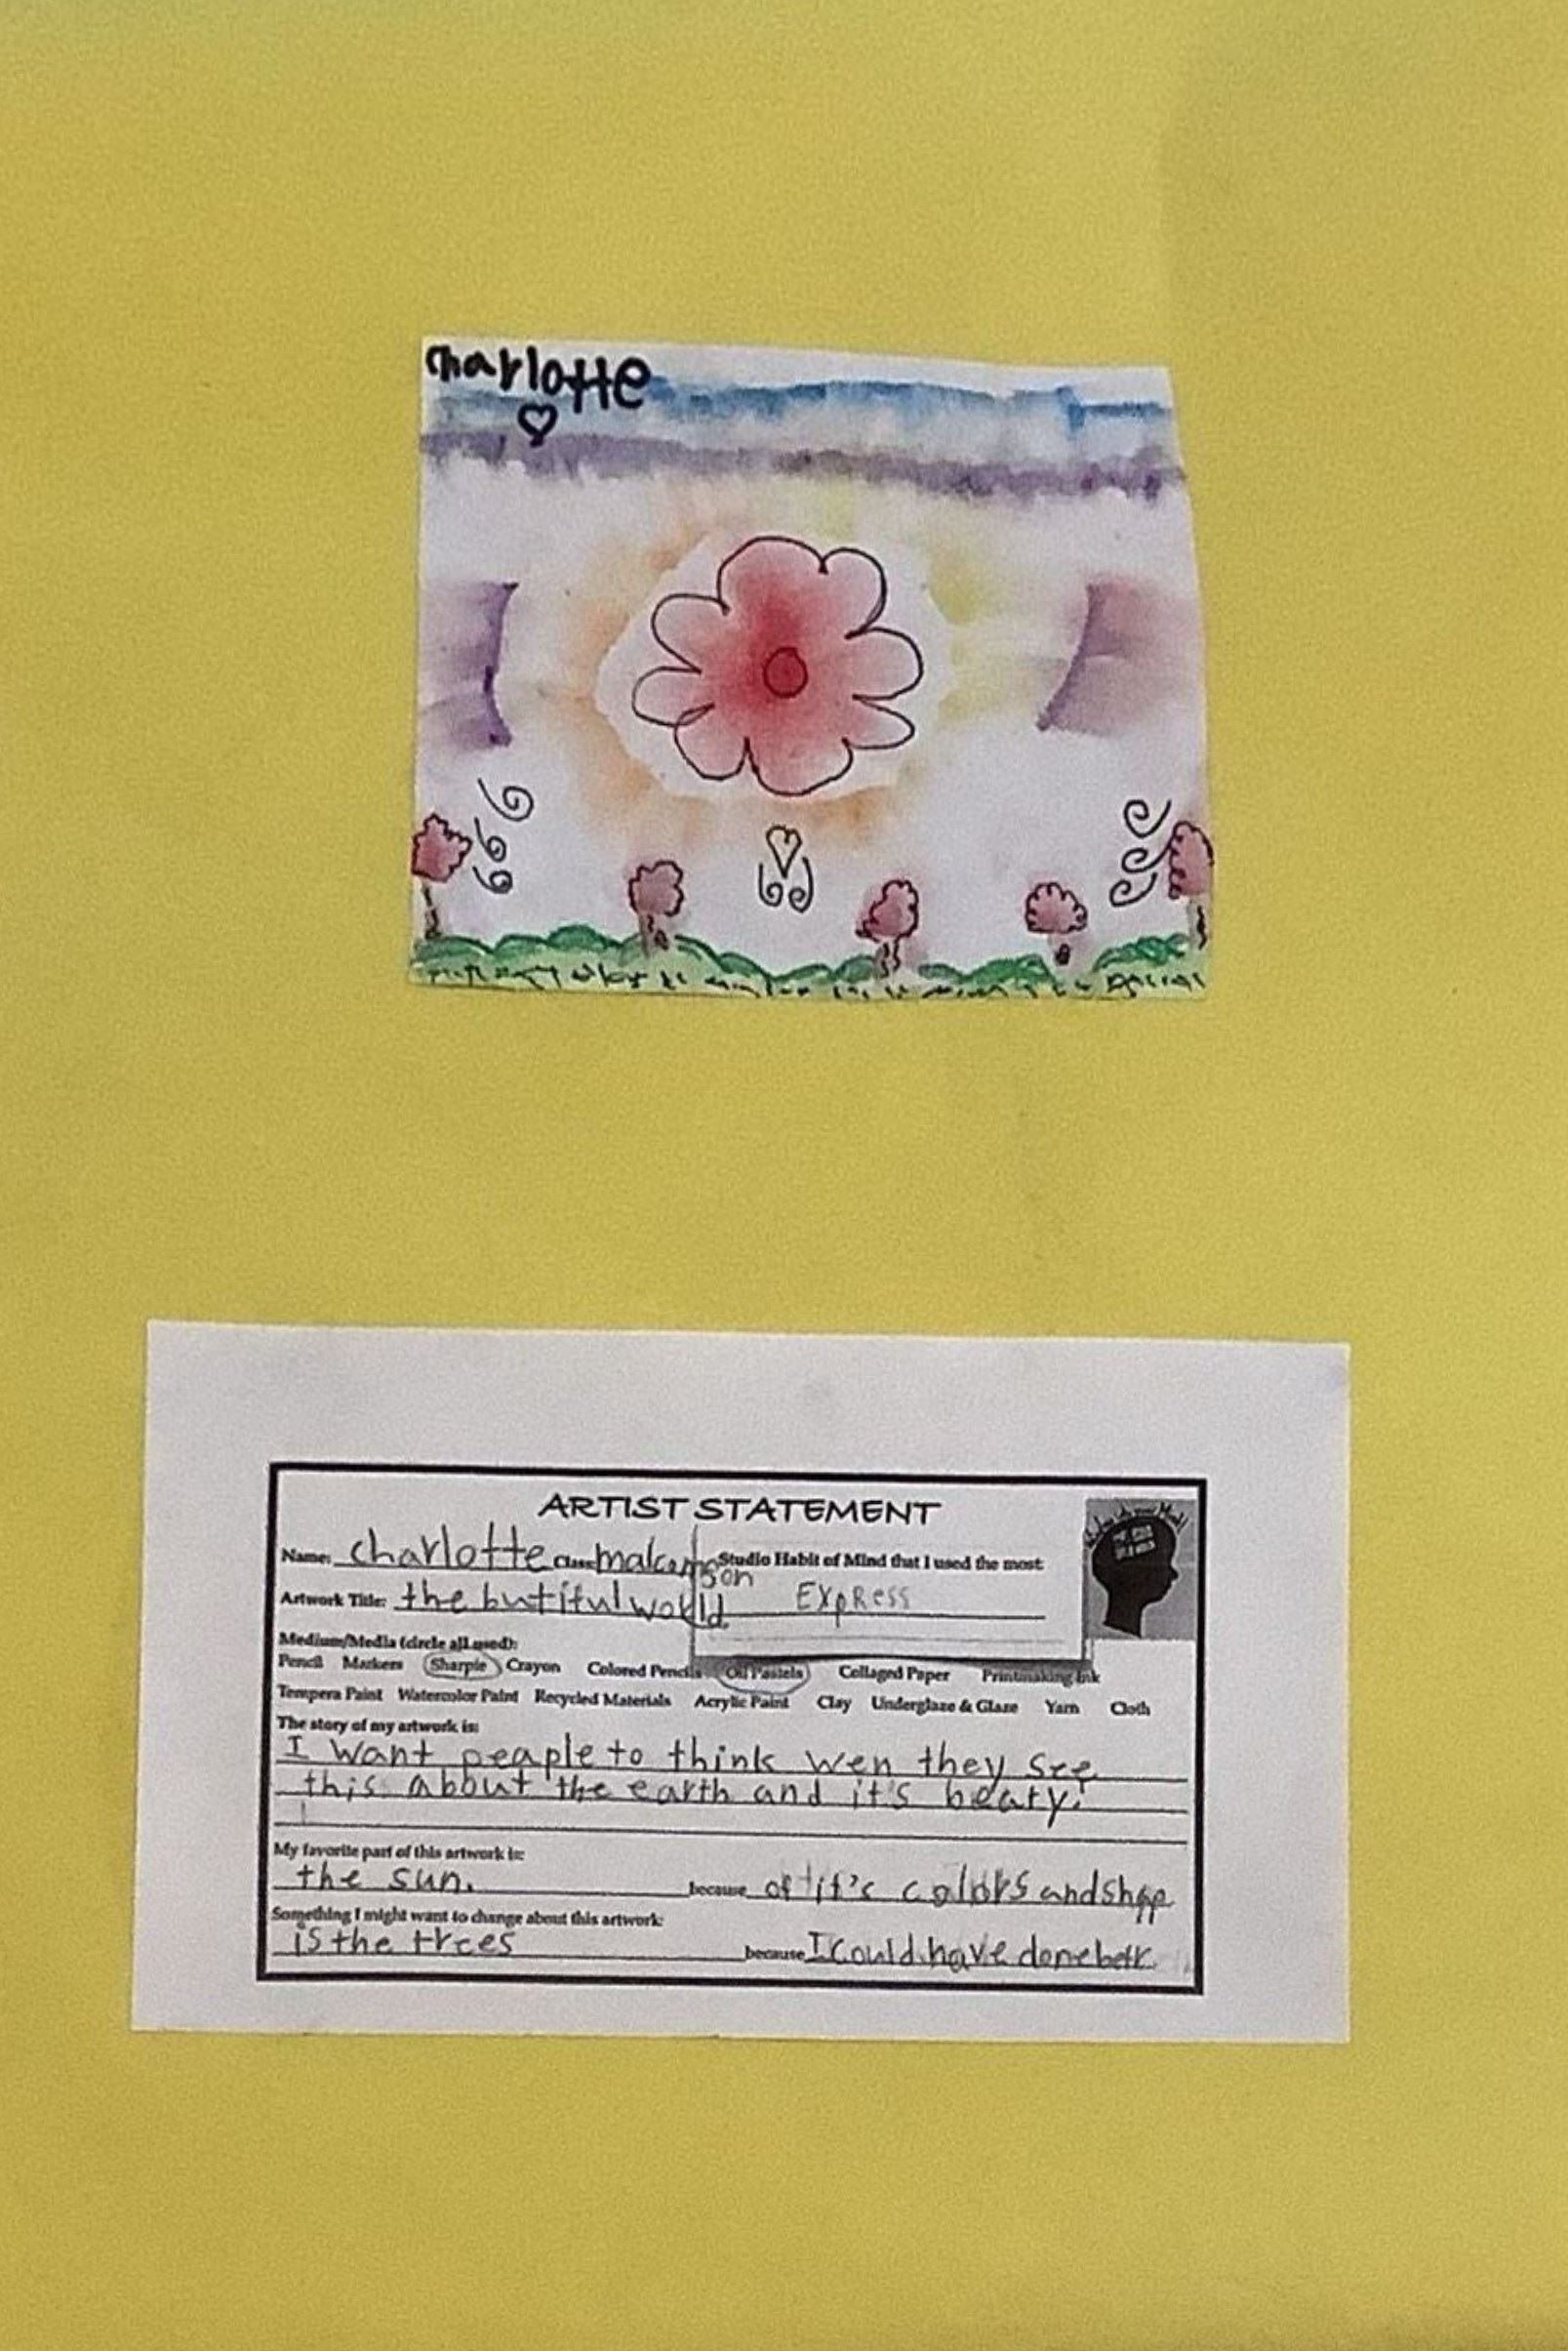 Charlotte
ARTIST STATEMENT
Name: charlotte Class: malcomson Studio Habit of Mind that I used the most:
Artwork Title: the butiful world EXpRESS
Medium/Media (circle all used):
Pencil Markers Sharpie Crayon Colored Pencils Oil Pastels Collaged Paper Printmaking Ink
Tempera Paint Watercolor Paint Recycled Materials Acrylic Paint Clay Underglaze & Glaze Yarn Cloth
The story of my artwork is:
I want peaple to think wen they see
this about the earth and it's beaty.
My favorite part of this artwork is:
the sun. because of it's colors and shap
Something I might want to change about this artwork:
is the trees because I could have done betr